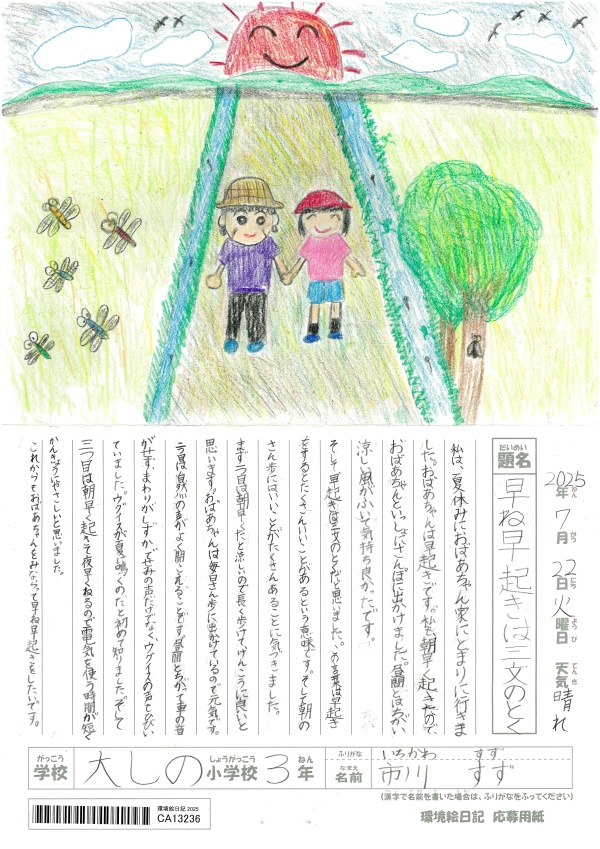 2025年7月22日火曜日 天気晴れ
ねん がつ にち ようび てんき
だいめい
題名 早ね早起きは三文のとく
私は、夏休みにおばあちゃん家にとまりに行きま
した。おばあちゃんは早起きです。私も朝早く起きたので、
おばあちゃんといっしょにさんぽに出かけました。昼間とはちがい
涼しい風がふいて気持ち良かったです。
そして早起きは三文のとくだと思いました。言葉は早起き
をするとたくさんいいことがあるという意味です。そして朝の
さん歩にはいいことがたくさんあることに気づきました。
まず一つ目は朝早くだと涼しいので長く歩けて、けんこうに良いと
思います。おばあちゃんは毎日さん歩に出かけているので元気です。
二つ目は自然の声がよく聞こえることです。昼間とちがって車の音
がせず、まわりがしずかでせみの声だけでなく、ウグイスの声もひびい
ていました。ウグイスが夏も鳴くのだと初めて知りました。そして
三つ目は朝早く起きて夜早くねるので電気を使う時間が短く
かんきょうにやさしいと思いました。
これからもおばあちゃんをみならって早ね早起きをしたいです。
がっこう しょうがっこう ねん
学校 大しの 小学校 3年
ふりがな いちかわ すず
なまえ
名前 市川 すず
(漢字で名前を書いた場合は、ふりがなをふってください)
環境絵日記 2025
CA13236
環境絵日記 応募用紙